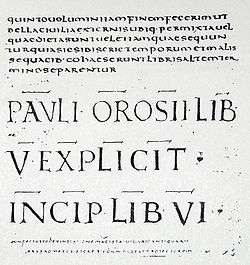 QUINTO UOLUMINI IAM FINEM FECERIM UT
BELLA CIUILIA EXTERNIS UBIQ· PERMIXTA UEL
QUAE DICTA SUNT UEL ETIAM QUAE SEQUUN
TUR QUIA SIC SIBI SERIE TEMPORUM ET MALIS
SEQUACIB· COHAESERUNT LIBRI SALTEM TER
MINO SEPARENTUR
PAULI· OROSII· LIB
V· EXPLICIT·
INCIP· LIB· VI·